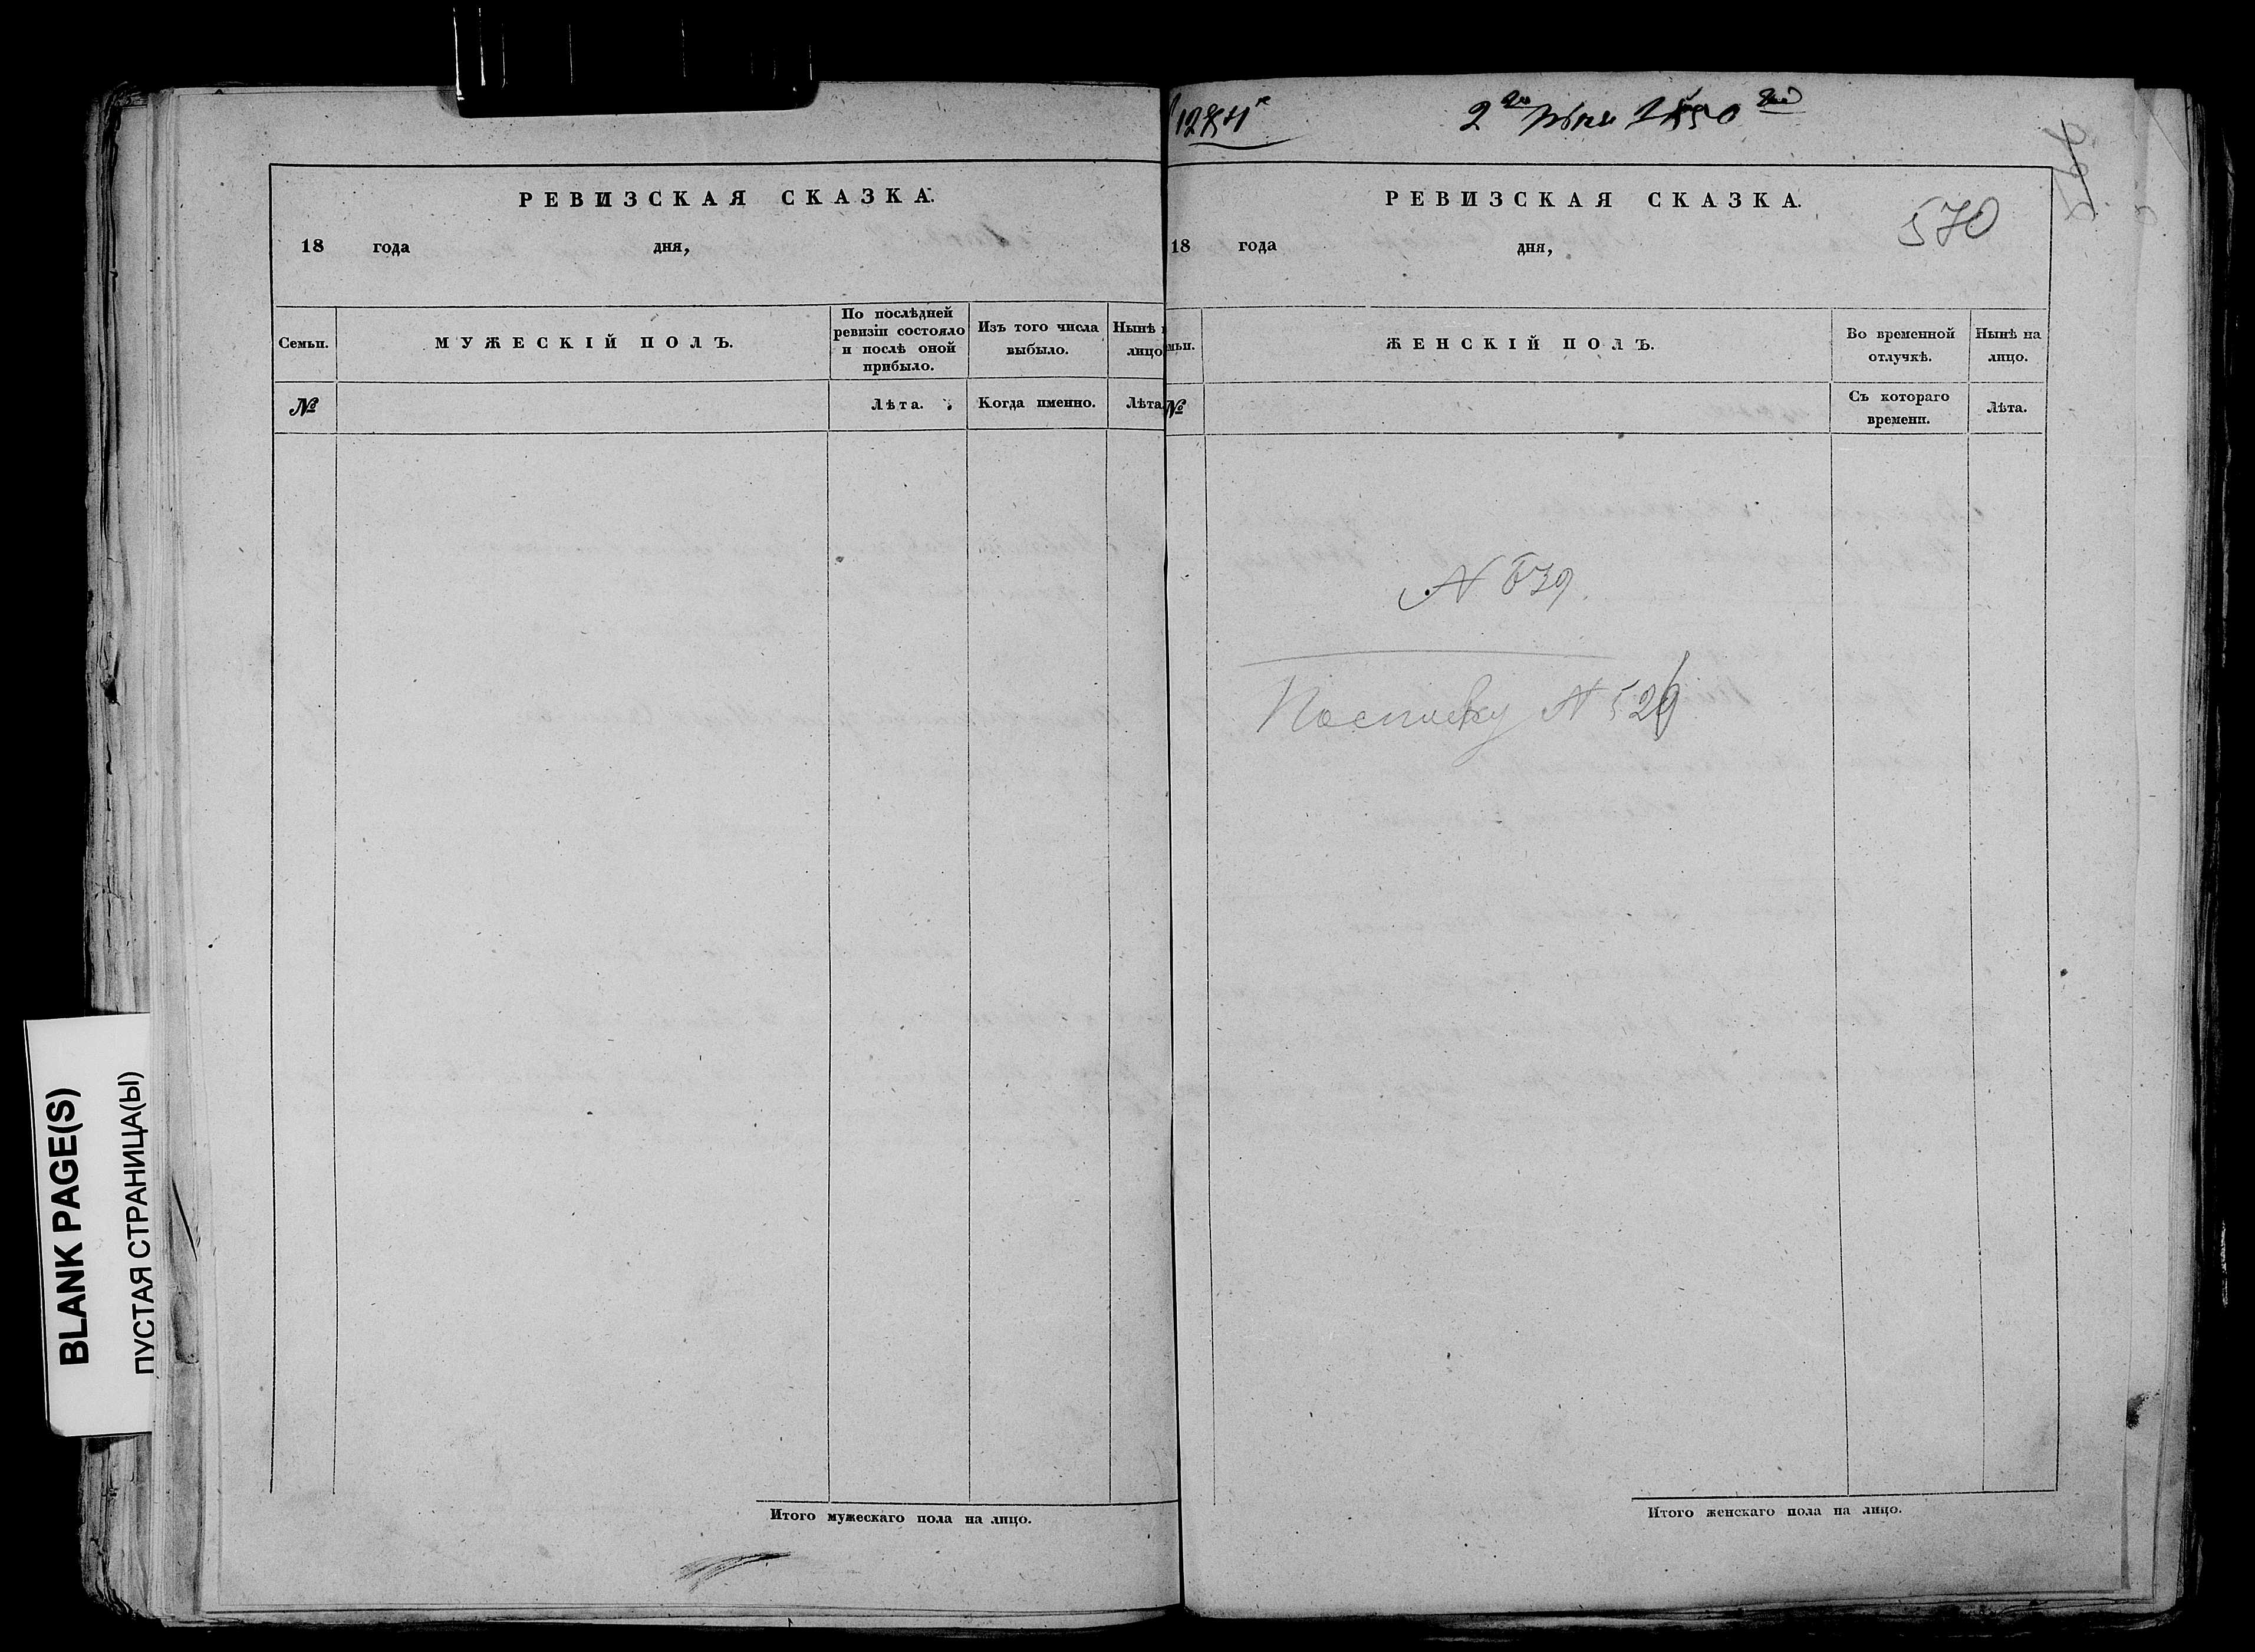 РЕВИЗСКАЯ СКАЗКА.
18 года дня,
Семьи.
МУЖЕСКІЙ ПОЛЪ.
По послѣдней
ревизіи состояло
и послѣ оной
прибыло.
Изъ того числа
выбыло.
Нынѣ
лицо
№
Лѣта.
Когда именно.
Лѣта
Итого мужескаго пола на лицо.
BLANK PAGE(S)
ПУСТАЯ СТРАНИЦА(Ы)
2го 1850
РЕВИЗСКАЯ СКАЗКА.
570
18 года дня,
мьи.
ЖЕНСКІЙ ПОЛЪ.
Во временной
отлучкѣ.
Нынѣ на
лицо.
№
Съ котораго
времени.
Лѣта.
N 639.
По списку N 529
Итого женскаго пола на лицо.